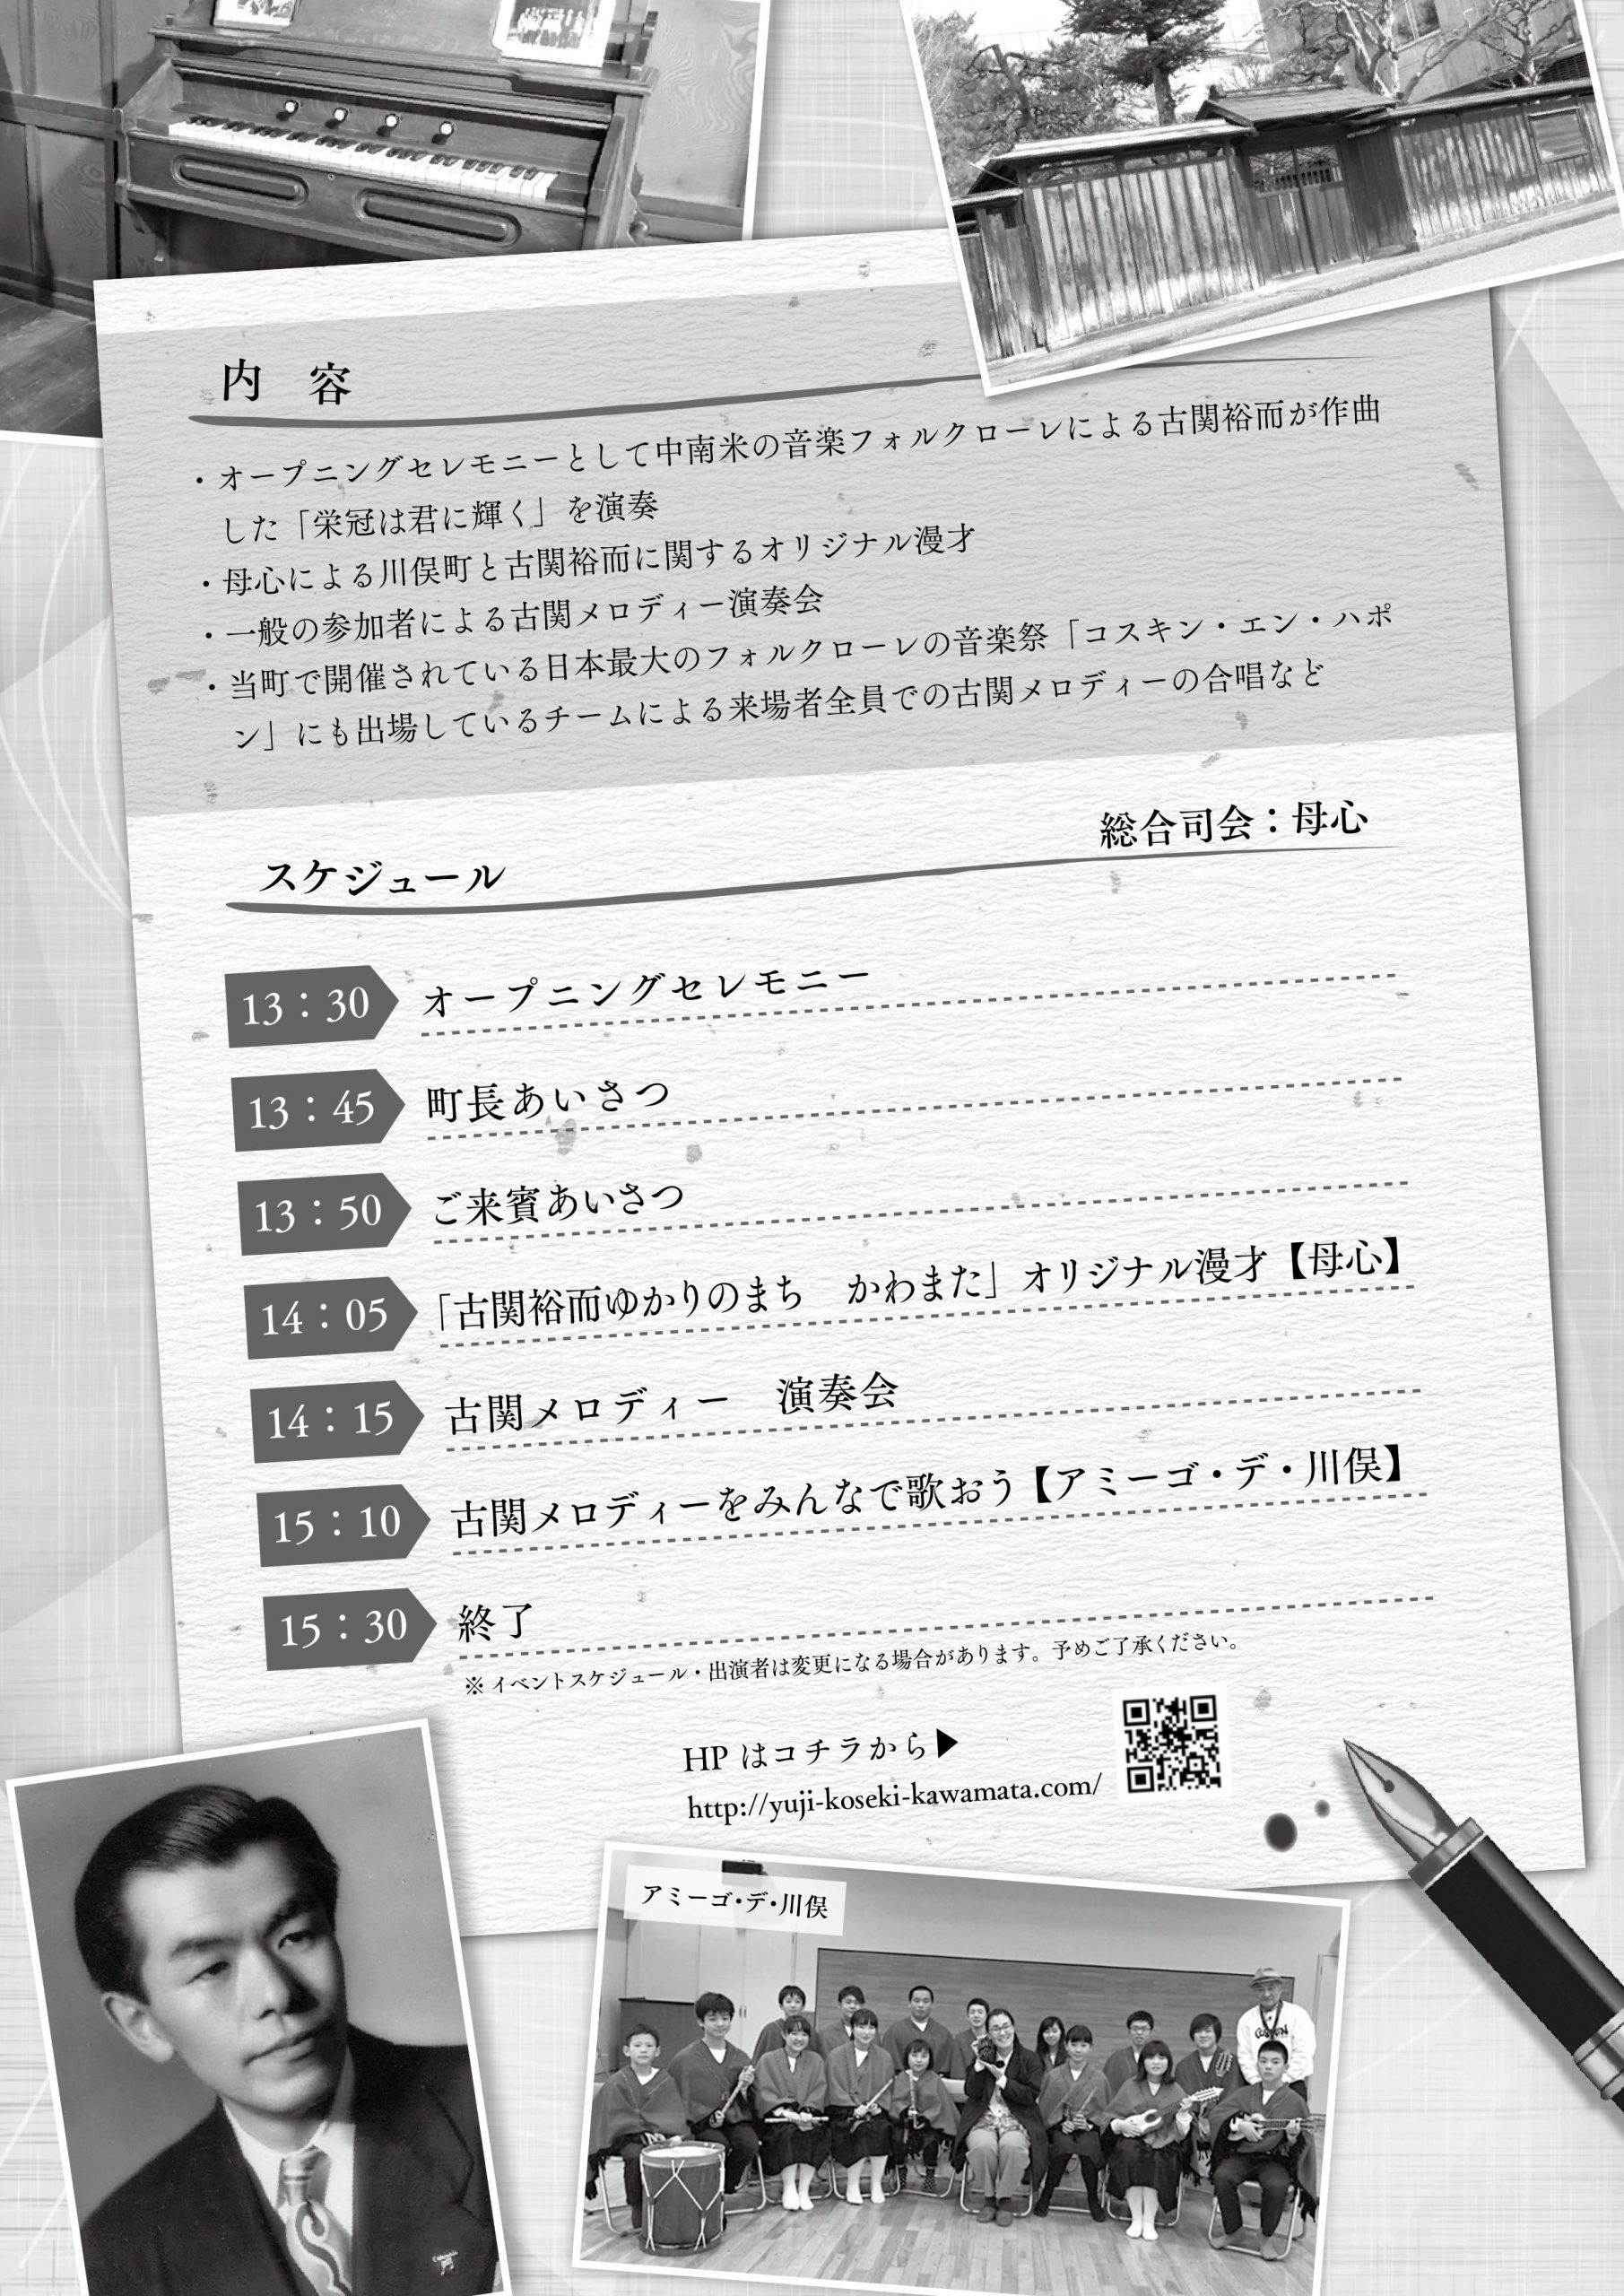 内　容
・オープニングセレモニーとして中南米の音楽フォルクローレによる古関裕而が作曲
した「栄冠は君に輝く」を演奏
・母心による川俣町と古関裕而に関するオリジナル漫才
・一般の参加者による古関メロディー演奏会
・当町で開催されている日本最大のフォルクローレの音楽祭「コスキン・エン・ハポ
ン」にも出場しているチームによる来場者全員での古関メロディーの合唱など
総合司会：母心
スケジュール
13：30 オープニングセレモニー
13：45 町長あいさつ
13：50 ご来賓あいさつ
14：05 「古関裕而ゆかりのまち　かわまた」オリジナル漫才【母心】
14：15 古関メロディー　演奏会
15：10 古関メロディーをみんなで歌おう【アミーゴ・デ・川俣】
15：30 終了
※イベントスケジュール・出演者は変更になる場合があります。予めご了承ください。
HPはコチラから▶
http://yuji-koseki-kawamata.com/
アミーゴ・デ・川俣